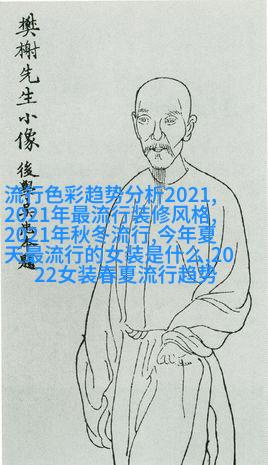 樊榭先生小像
後學
流行色彩趋势分析2021,
2021年最流行装修风格,
2021年秋冬流行,今年夏
天最流行的女装是什么,20
22女装春夏流行趋势